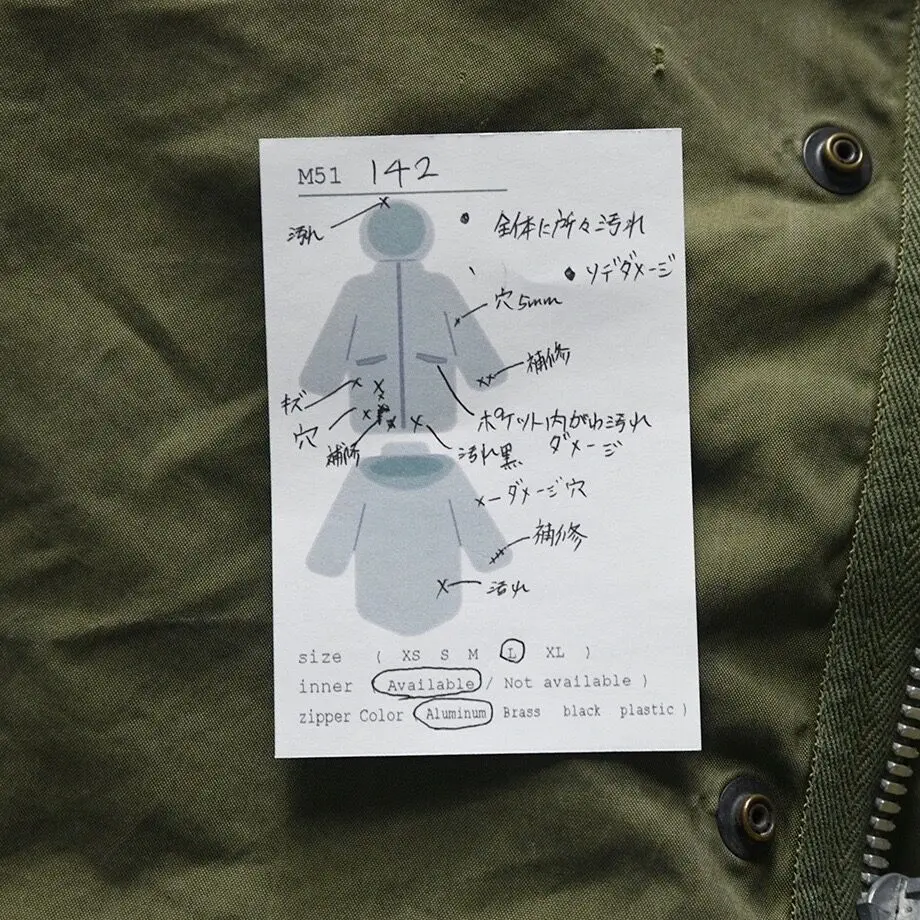 M51 142
汚れ
全体に所々汚れ
ソデダメージ
穴 5mm
補修
キズ
穴
補修
ポケット内がわ汚れ
ダメージ
汚れ黒
ダメージ穴
補修
汚れ
size ( XS S M L XL )
inner ( Available / Not available )
zipper Color ( Aluminum Brass black plastic )